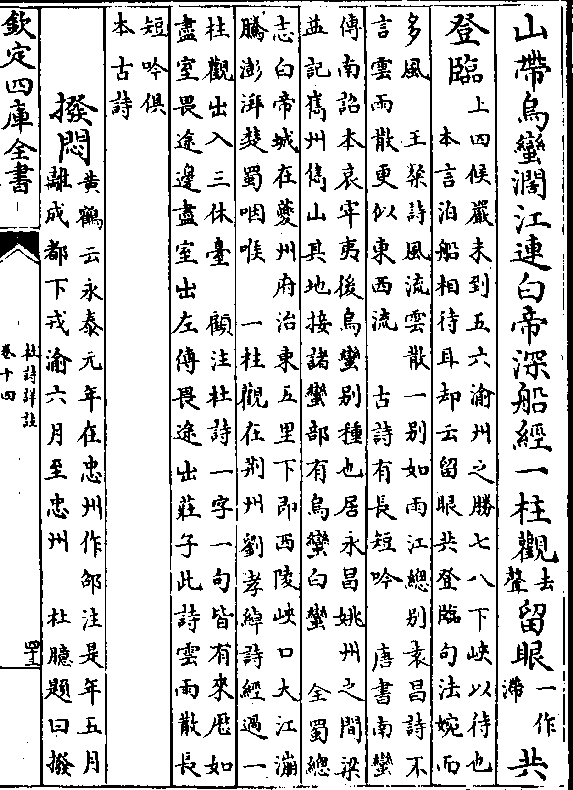 山帶烏蠻濶江連白帝深船經一柱觀去聲留眼一作滯共
登臨上四候嚴未到五六渝州之勝七八下峽以待也
本言泊船相待耳却云留眼共登臨句法婉而
多風　王粲詩風流雲散一别如雨江總别袁昌詩不
言雲雨散更似東西流　古詩有長短吟　唐書南蠻
傳南詔本哀牢夷後烏蠻别種也居永昌姚州之間梁
益記嶲州嶲山其地接諸蠻部有烏蠻白蠻　全蜀總
志白帝城在夔州府治東五里下即西陵峽口大江灡
騰澎湃爲蜀咽喉　一柱觀在荆州劉孝綽詩經過一
柱觀出入三休臺　顧注杜詩一字一句皆有來歴如
盡室畏途邊盡室出左傳畏途出莊子此詩雲雨散長
短吟俱
本古詩
撥悶黄鶴云永泰元年在忠州作邵注是年五月
離成都下戎渝六月至忠州　杜臆題曰撥
欽定四庫全書
杜詩詳註
卷十四